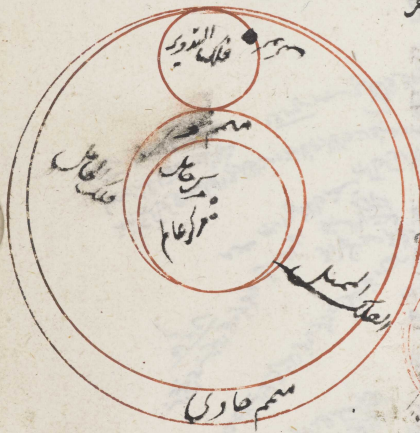 فلك التدوير
متمم
فلك الحامل
مركز حامل
مركز عالم
الفلك الممثل
متمم حاوي